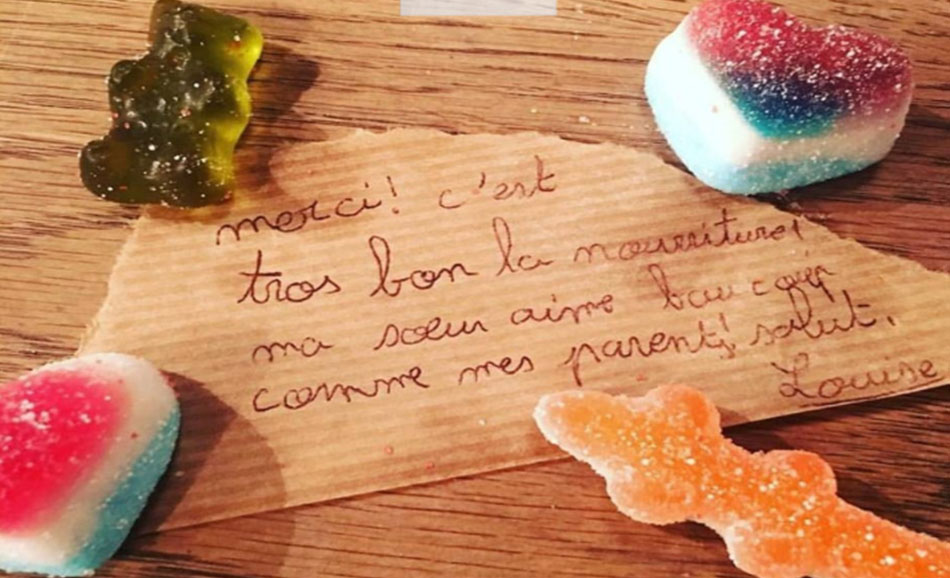 merci! c'est
tros bon la nourriture!
ma sœur aime baucoup
comme mes parent! salut.
Louise